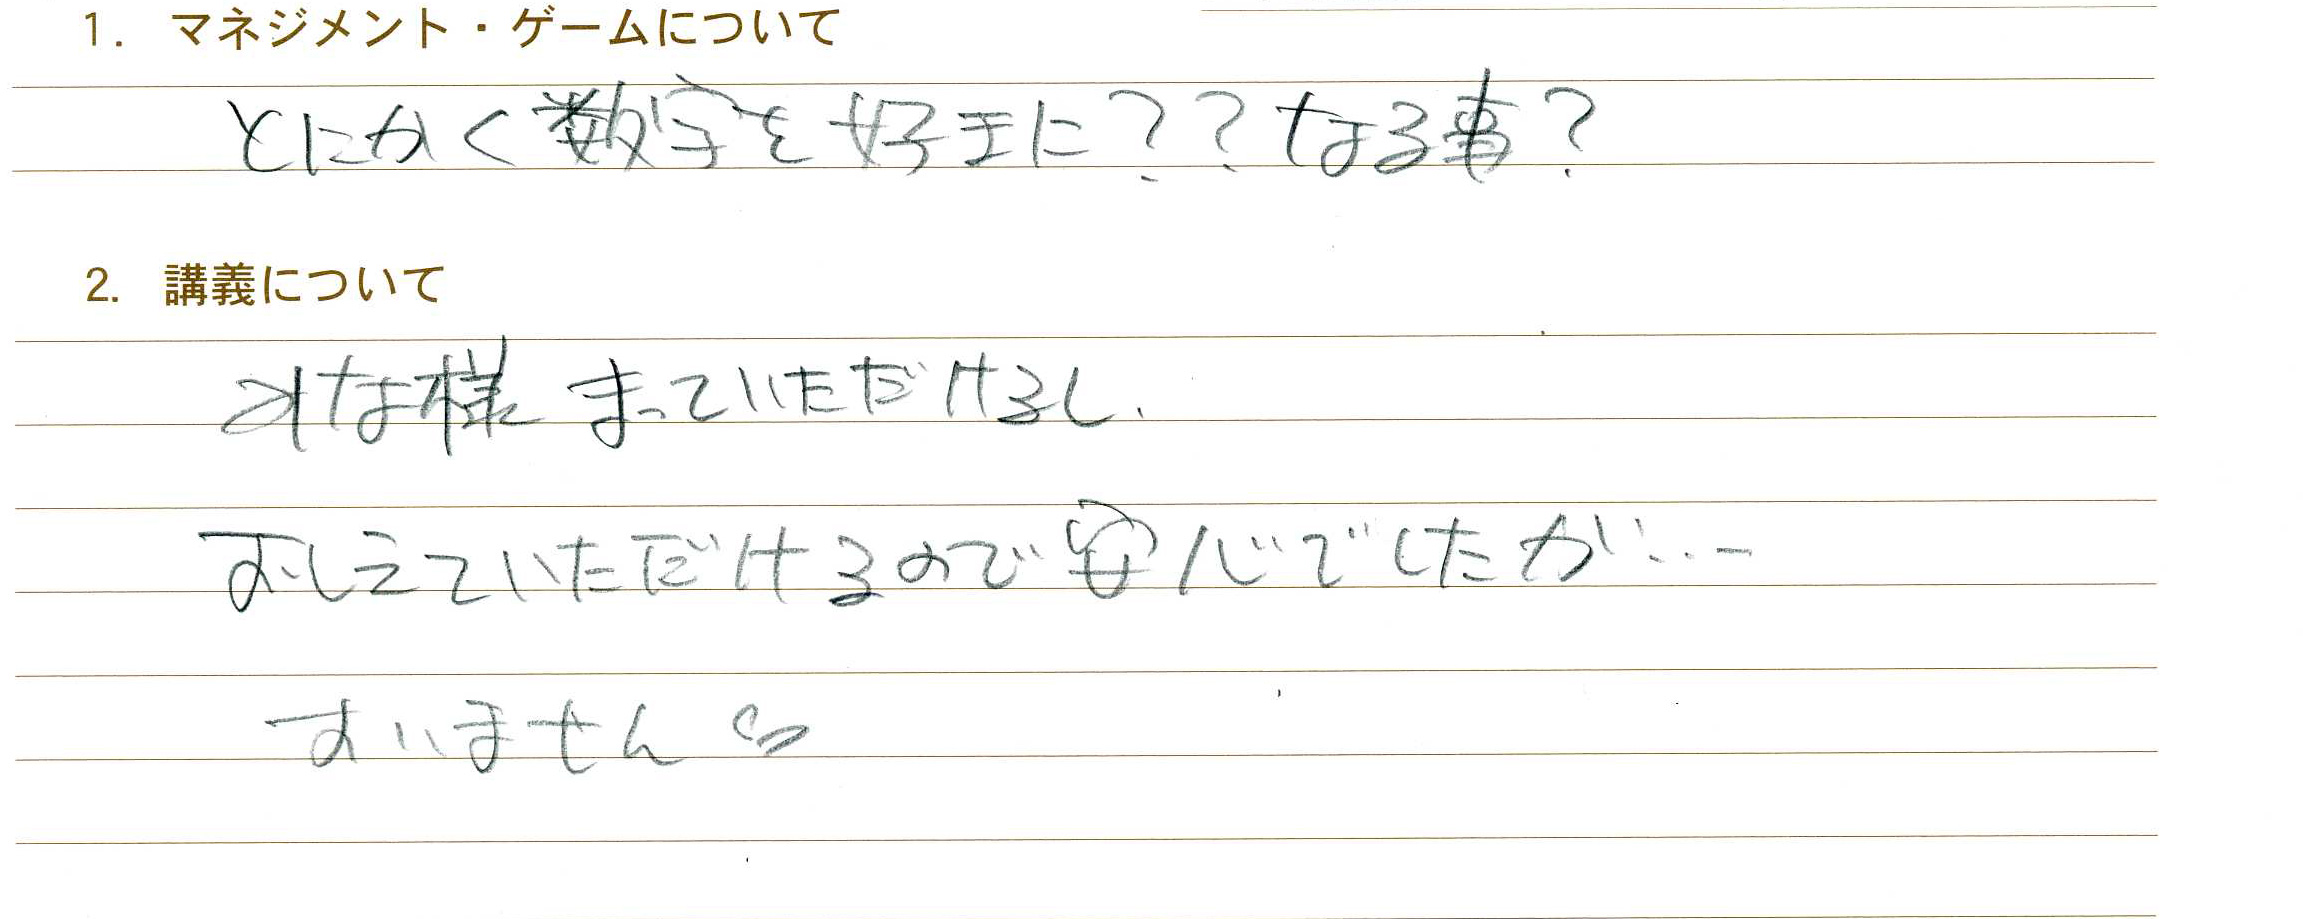 1. マネジメント・ゲームについて
とにかく数字を好きに??なる事?
2. 講義について
みな様まっていただけるし.
おしえていただけるので安心でしたが...-
すいません